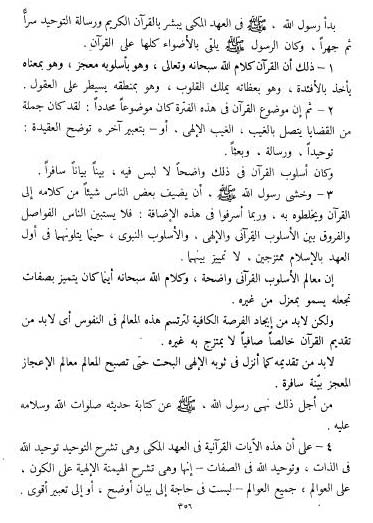 بدأ رسول الله ، ﷺ فى العهد المكى يبشر بالقرآن الكريم ورسالة التوحيد سراً
ثم جهراً ، وكان الرسول ﷺ يلقى بالأضواء كلها على القرآن .
١ – ذلك أن القرآن كلام الله سبحانه وتعالى ، وهو بأسلوبه معجز ، وهو بمعناه
يأخذ بالأفئدة ، وهو بعظاته يملك القلوب ، وهو بمنطقه يسيطر على العقول .
٢ – ثم إن موضوع القرآن فى هذه الفترة كان موضوعاً محدداً : لقد كان جملة
من القضايا يتصل بالغيب ، الغيب الإلهى . أو – بتعبير آخر – توضح العقيدة :
توحيداً ، ورسالة . وبعثاً .
وكان أسلوب القرآن فى ذلك واضحاً لا لبس فيه ، بيناً بياناً سافراً .
٣ – وخشى رسول الله ﷺ ، أن يضيف بعض الناس شيئاً من كلامه إلى
القرآن ويخلطوه به ، وربما أسرفوا فى هذه الإضافة : فلا يستبين الناس الفواصل
والفروق بين الأسلوب القرآنى والإلهى . والأسلوب النبوى ، حينما يتلونهما فى أول
العهد بالإسلام ممتزجين . لا تمييز بينهما .
إن معالم الأسلوب القرآنى واضحة ، وكلام الله سبحانه أينما كان يتميز بصفات
تجعله يسمو بمعزل عن غيره .
ولكن لابد من إيجاد الفرصة الكافية لترتسم هذه المعالم فى النفوس أى لابد من
تقديم القرآن خالصاً صافياً لا يمتزج به غيره .
لابد من تقديمه كما أنزل فى ثوبه الإلهى البحت حتى تصبح المعالم معالم الإعجاز
المعجز بيّنة سافرة .
من أجل ذلك نهى رسول الله ، ﷺ عن كتابة حديثه صلوات الله وسلامه
عليه .
٤ – على أن هذه الآيات القرآنية فى العهد المكى وهى تشرح التوحيد توحيد الله
فى الذات ، وتوحيد الله فى الصفات – إنها وهى تشرح الهيمنة الإلهية على الكون ،
على العوالم ؛ جميع العوالم – ليست فى حاجة إلى بيان أوضح ، أو إلى تعبير أقوى .
٣٥٦